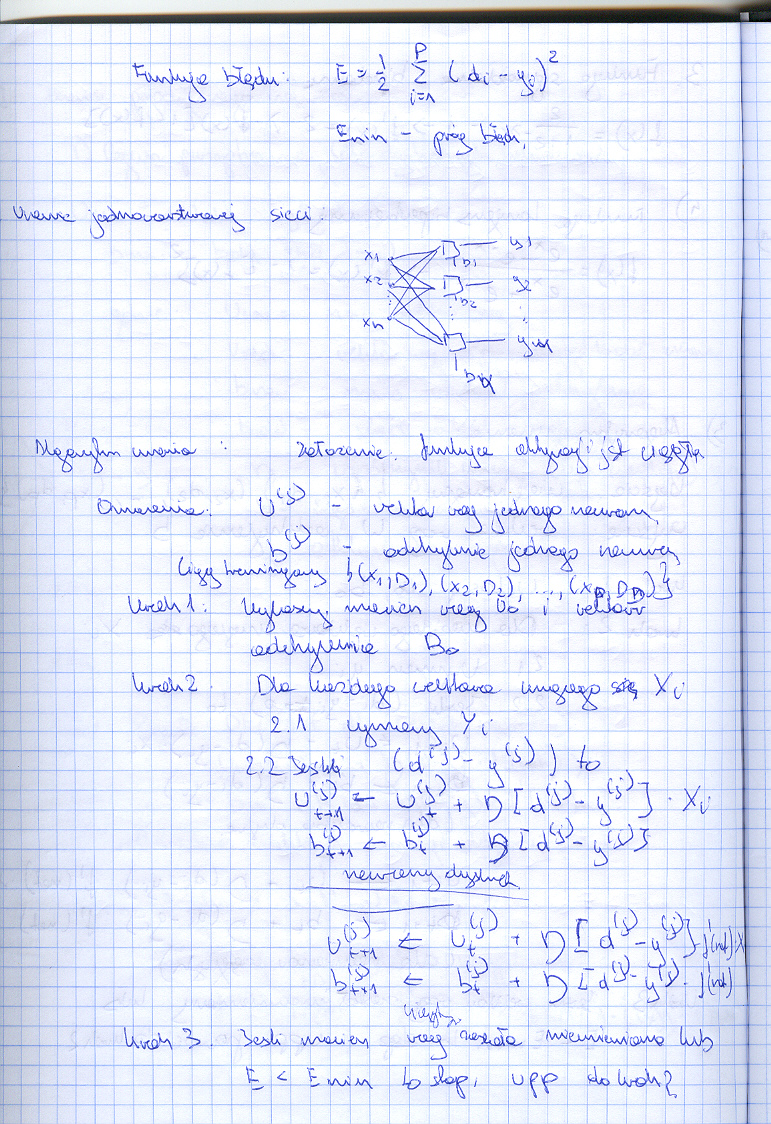 Funkcja błędu: E = 1/2 P Σ i=1 (di - yi)²
Emin - próg błędu,
Uczenie jednowarstwowej sieci.
x1 b1 y1
x2 b2 y2
xn
Algorytm uczenia : założenie: funkcja aktywacji jest ciągła
Oznaczenia: U^(j) - wektor wag jednego neuronu,
b^(j) - odchylenie jednego neuronu
Ciąg treningowy {(X1,D1), (X2,D2), ..., (Xp,Dp)}
Krok 1. Wylosuj macierz wag U0 i wektor
odchylenia B0
Krok 2. Dla każdego wektora uczącego się Xi
2.1 wyznaczamy Yi
2.2 Jeśli (d^(j) - y^(j)) to
U^(j)_t+1 ← U^(j)_t + η [d^(j) - y^(j)] · Xi
b^(j)_t+1 ← b^(j)_t + η [d^(j) - y^(j)]
neurony
U^(j)_t+1 ← U^(j)_t + η [d^(j) - y^(j)] · f'(net) · X
b^(j)_t+1 ← b^(j)_t + η [d^(j) - y^(j)] · f'(net)
Krok 3. Jeśli macierz wag została niezmieniona lub
E < Emin to stop, wpp do krok2